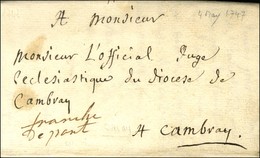 A Monsieur
4 May 1747
Monsieur L'official Juge
Ecclesiastique du diocese de
Cambray
franche
De pont
A Cambray.